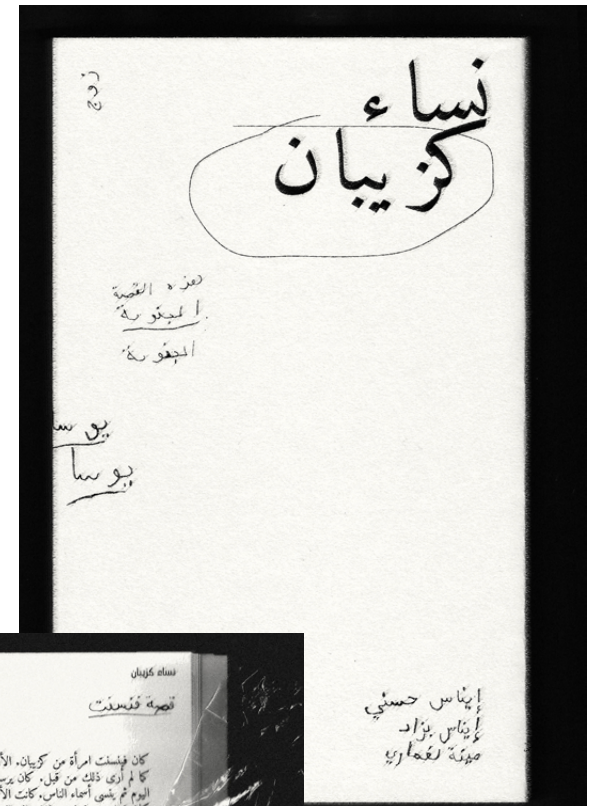 نساء
كزيبان
زوج
هذه القصة
المجنونة
المجنونة
يوسا
يوسا
إيناس حسني
إيناس بزاد
لغماري
نساء كزيبان
قصة فنسنت
كان فينسنت امرأة من كزيبان. الأ
كما لم أرى ذلك من قبل. كان يرس
اليوم ثم ينسى أسماء الناس. كانت الأ